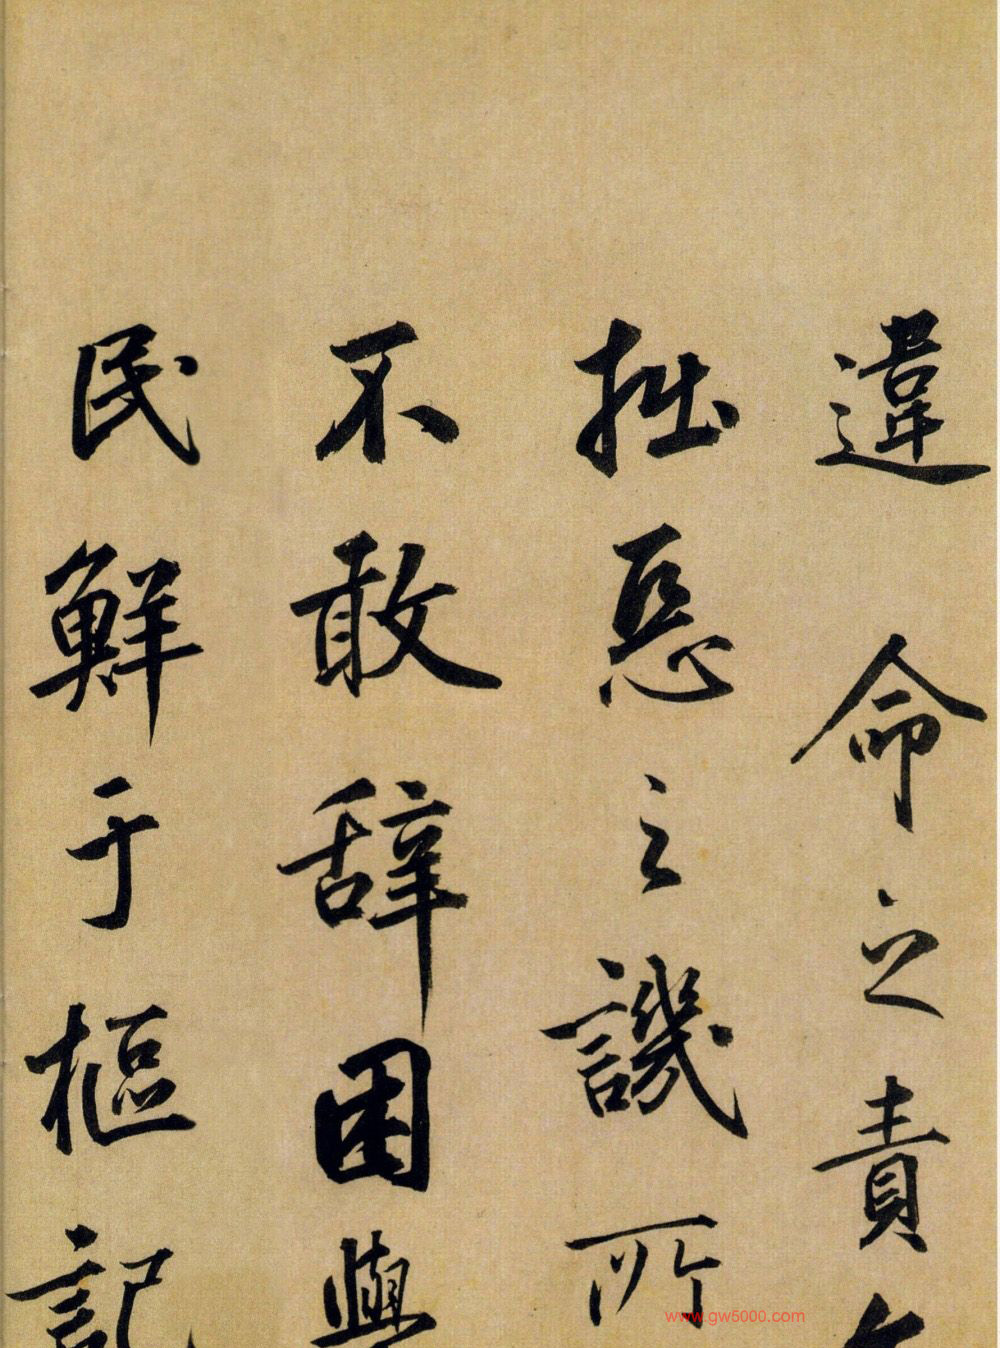 違命之責
拙惡之譏所
不敢辞困與
民鮮于樞記
www.gw5000.com